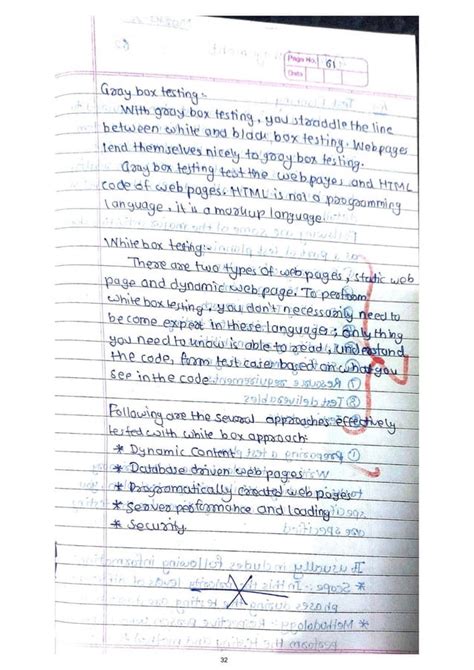 Page No. 61
Date
Gray box testing:-
With gray box testing, you straddle the line
between white and black box testing. Webpages
lend themselves nicely to gray box testing.
Gray box testing test the web pages and HTML
code of web pages. HTML is not a programming
language, it is a markup language.
White box testing:-
There are two types of web pages, static web
page and dynamic web page. To perform
white box testing, you don't necessarily need to
become expert in these languages, only thing
you need to know is able to read, understand
the code, form test cases based on what you
see in the code.
Following are the several approaches effectively
tested with white box approach:
* Dynamic Content
* Database driven web pages
* Programatically created web pages
* Server performance and loading
* Security.
32